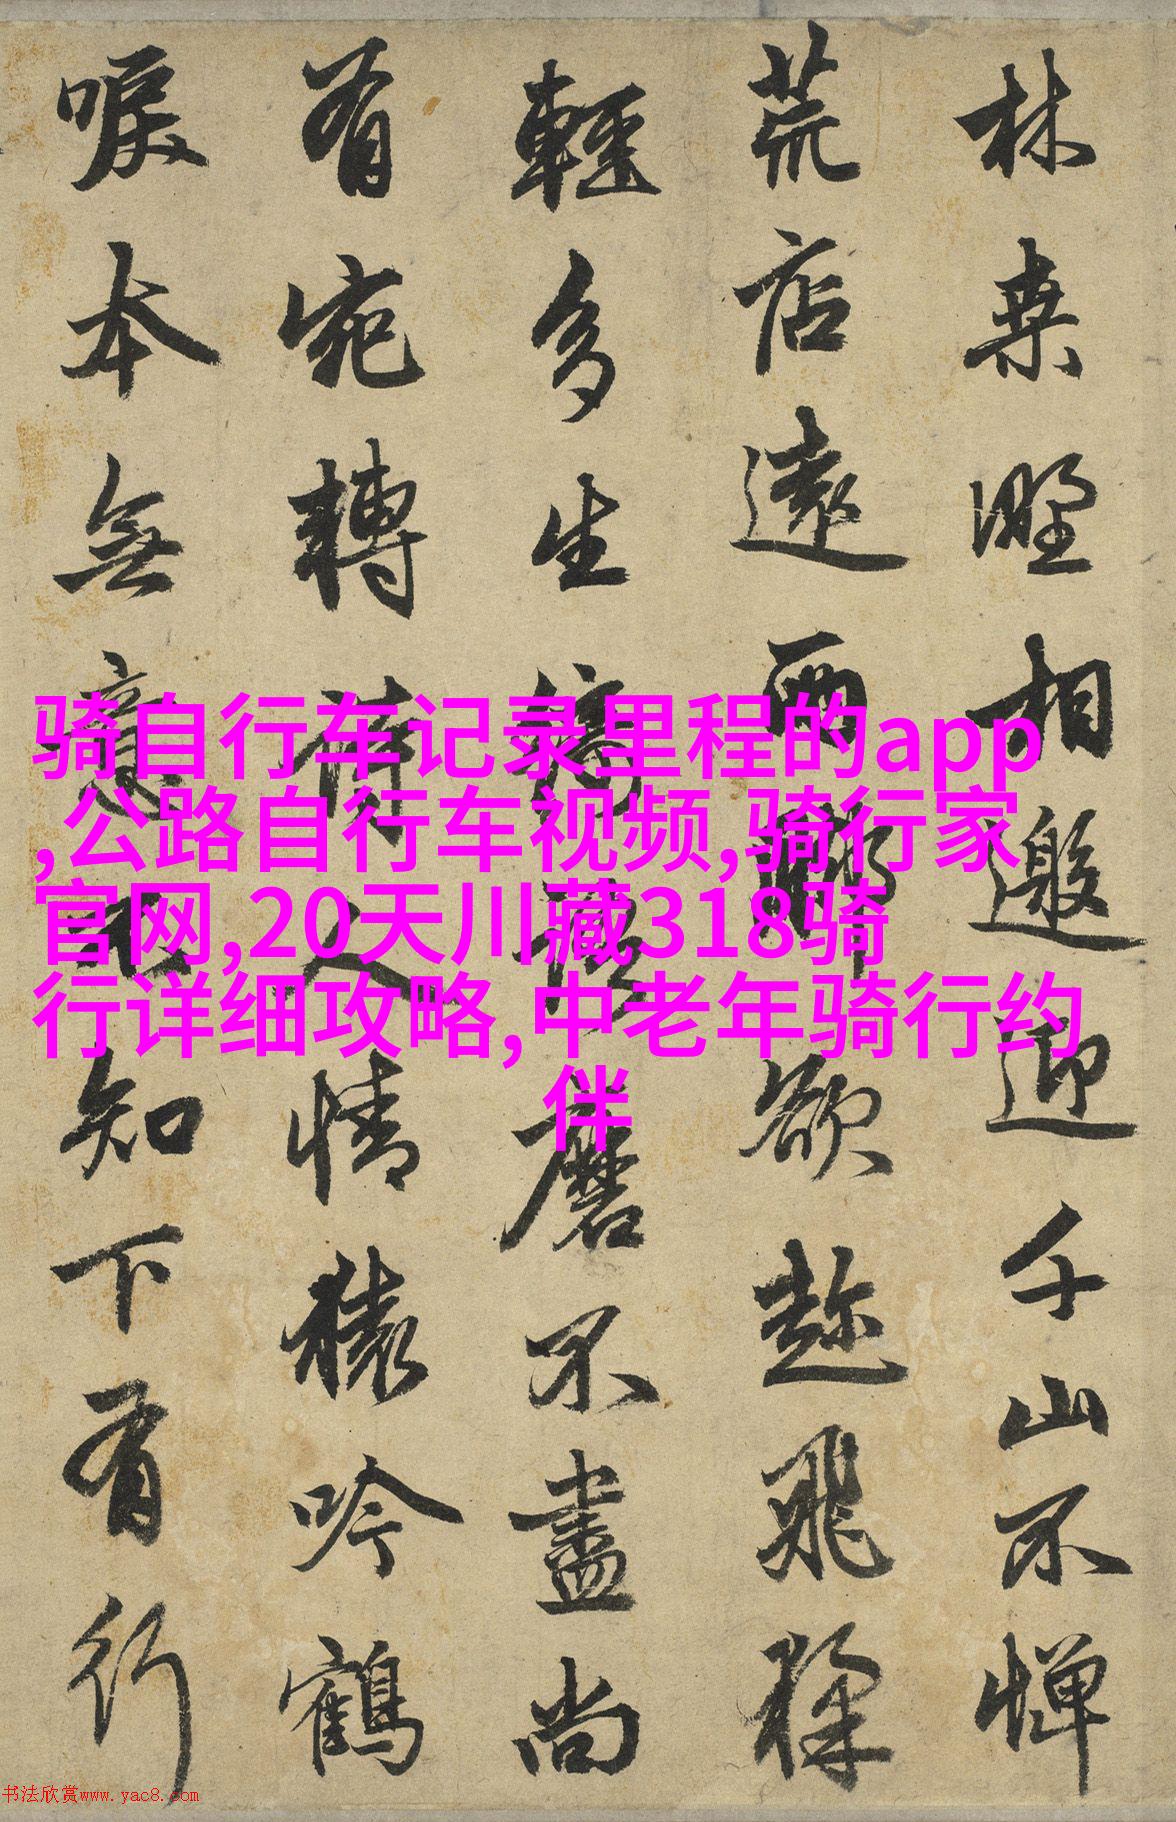 林桒野相邀迎千山不憚
荒店遠兩腳欲趂飛猱
輕多生綺語磨不盡尚
有宛轉詩人情猿吟鶴
唳本無意不知下有行
骑自行车记录里程的app
,公路自行车视频,骑行家
官网,20天川藏318骑
行详细攻略,中老年骑行约
伴
书法欣赏www.yac8.com